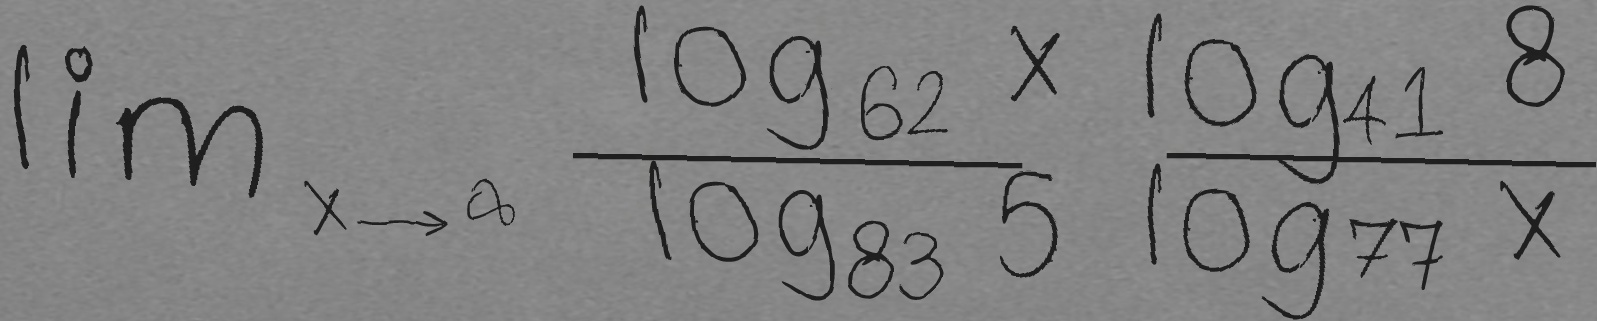 \lim_{x \to \infty} \frac{\log_{62} x}{\log_{83} 5} \frac{\log_{41} 8}{\log_{77} x}